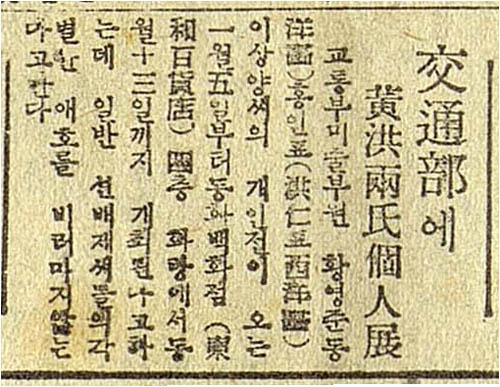 交通部에
黃洪兩氏個人展
교통부미술부원 황영준동
洋畵)홍인표(洪仁표西洋畵)
이상양씨의 개인전이 오는
一월五일부터동화백화점 (東
和百貨店) 四층 화랑에서동
월十三일까지 개최된다고하
는데 일반 선배제씨들의각
별한 애호를 비러마지않는
다고한다